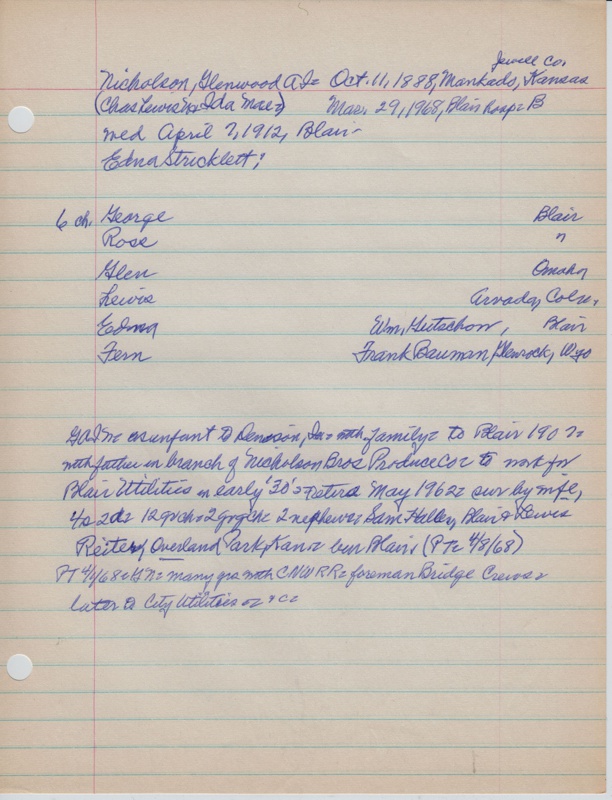 Jewell Co.
Nicholson, Glenwood A I= Oct. 11, 1888, Mankado, Kansas
(Chas Lewis N= Ida Mae=) Mar. 29, 1968, Blair Hosp= B
med April 7, 1912, Blair-
Edna Stricklett;
6 ch. George Blair
Rose "
Glen Omaha
Lewis Arvada, Colo.
Edna Wm. Gutschow, Blair
Fern Frank Bauman, Glenrock, Wyo
GAIN= as infant to Denison, Ia= with family= to Blair 190
with father in branch of Nicholson Bros Produce Co= to work for
Blair Utilities in early '30's= retird May 1962= sur by wife,
4s 2d= 12 grch= 2 grgrch= 2 nephews= Sam Halley, Blair & Lewis
Reiter, Overland Park, Kan= bur Blair, (PT= 4/8/68)
PT 4/4/68= GN= many yrs with CNWRR= foreman Bridge Crews=
later to City Utilities